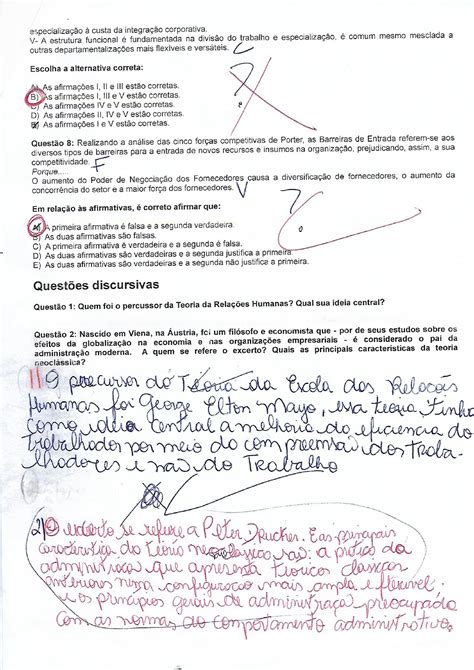 especialização à custa da integração corporativa.
V- A estrutura funcional é fundamentada na divisão do trabalho e especialização, é comum mesmo mesclada a
outras departamentalizações mais flexíveis e versáteis. C
Escolha a alternativa correta:
A) As afirmações I, II e III estão corretas.
B) As afirmações I, III e V estão corretas.
C) As afirmações IV e V estão corretas.
D) As afirmações II, IV e V estão corretas.
As afirmações I e V estão corretas.
Questão 8: Realizando a análise das cinco forças competitivas de Porter, as Barreiras de Entrada referem-se aos
diversos tipos de barreiras para a entrada de novos recursos e insumos na organização, prejudicando, assim, a sua
competitividade. F
Porque.....
O aumento do Poder de Negociação dos Fornecedores causa a diversificação de fornecedores, o aumento da
concorrência do setor e a maior força dos fornecedores. V
Em relação às afirmativas, é correto afirmar que:
A) A primeira afirmativa é falsa e a segunda verdadeira.
B) As duas afirmativas são falsas.
C) A primeira afirmativa é verdadeira e a segunda é falsa.
D) As duas afirmativas são verdadeiras e a segunda justifica a primeira.
E) As duas afirmativas são verdadeiras e a segunda não justifica a primeira.
Questões discursivas
Questão 1: Quem foi o percussor da Teoria da Relações Humanas? Qual sua ideia central?
Questão 2: Nascido em Viena, na Áustria, foi um filósofo e economista que - por de seus estudos sobre os
efeitos da globalização na economia e nas organizações empresariais - é considerado o pai da
administração moderna. A quem se refere o excerto? Quais as principais características da teoria
neoclássica?
1) O precursor do Teoria da Escola das Relações
Humanas foi George Elton Mayo, essa teoria tinha
como ideia central a melhoria do eficiencia do
trabalhador por meio do compreensão dos traba-
lhadores e nao do Trabalho
2) O excerto se refere a Peter Drucker. E as principais
caracteristica do teoria neoclássica são: a pratica da
administração que apresenta teoricos classicas
anteriores numa configuracao mais ampla e flexivel
e os principios gerais de administração preocupada
com as normas do comportamento administrativo.